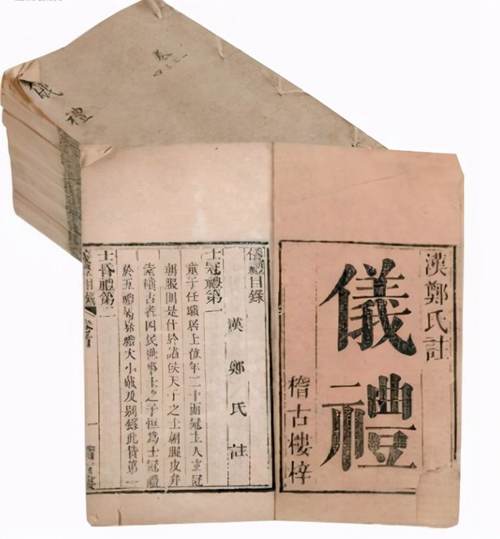 儀禮
卷
漢鄭氏註
儀禮
稽古樓梓
儀禮目錄
漢鄭氏註
士冠禮第一
童子任職居士位年二十而冠主人玄冠
朝服則是仕於諸侯天子之士朝服皮弁
素積古者四民世事士之子恆為士冠禮
於五禮屬嘉禮大小戴及別錄此皆第一
士昏禮第二